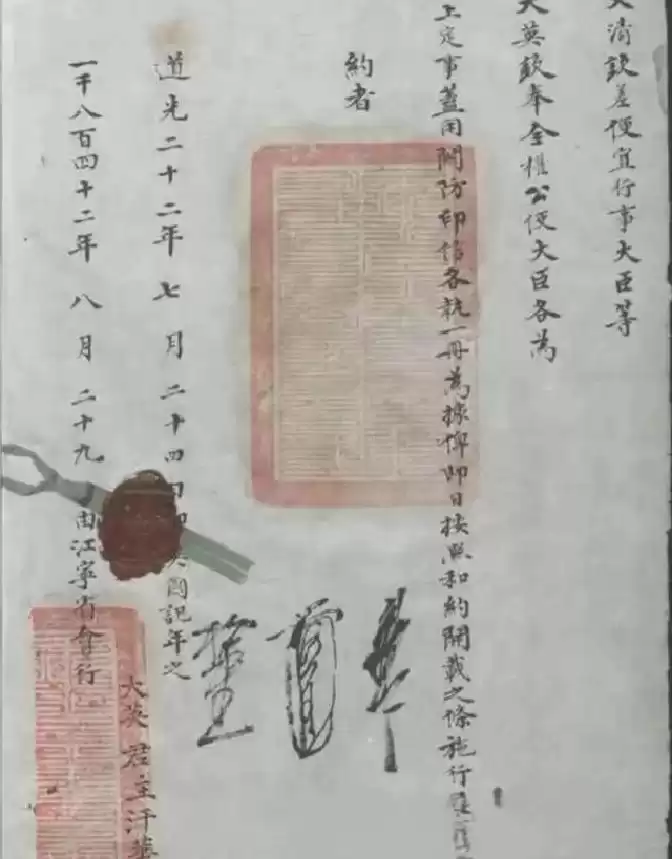 大清欽差便宜行事大臣等
大英欽奉全權公使大臣各為
上定事蓋用關防印信各執一冊為據俾即日按照和約開載之條施行
約者
道光二十二年七月二十四日即英國記年之
一千八百四十二年八月二十九由江寧省會行
大英君主汗華